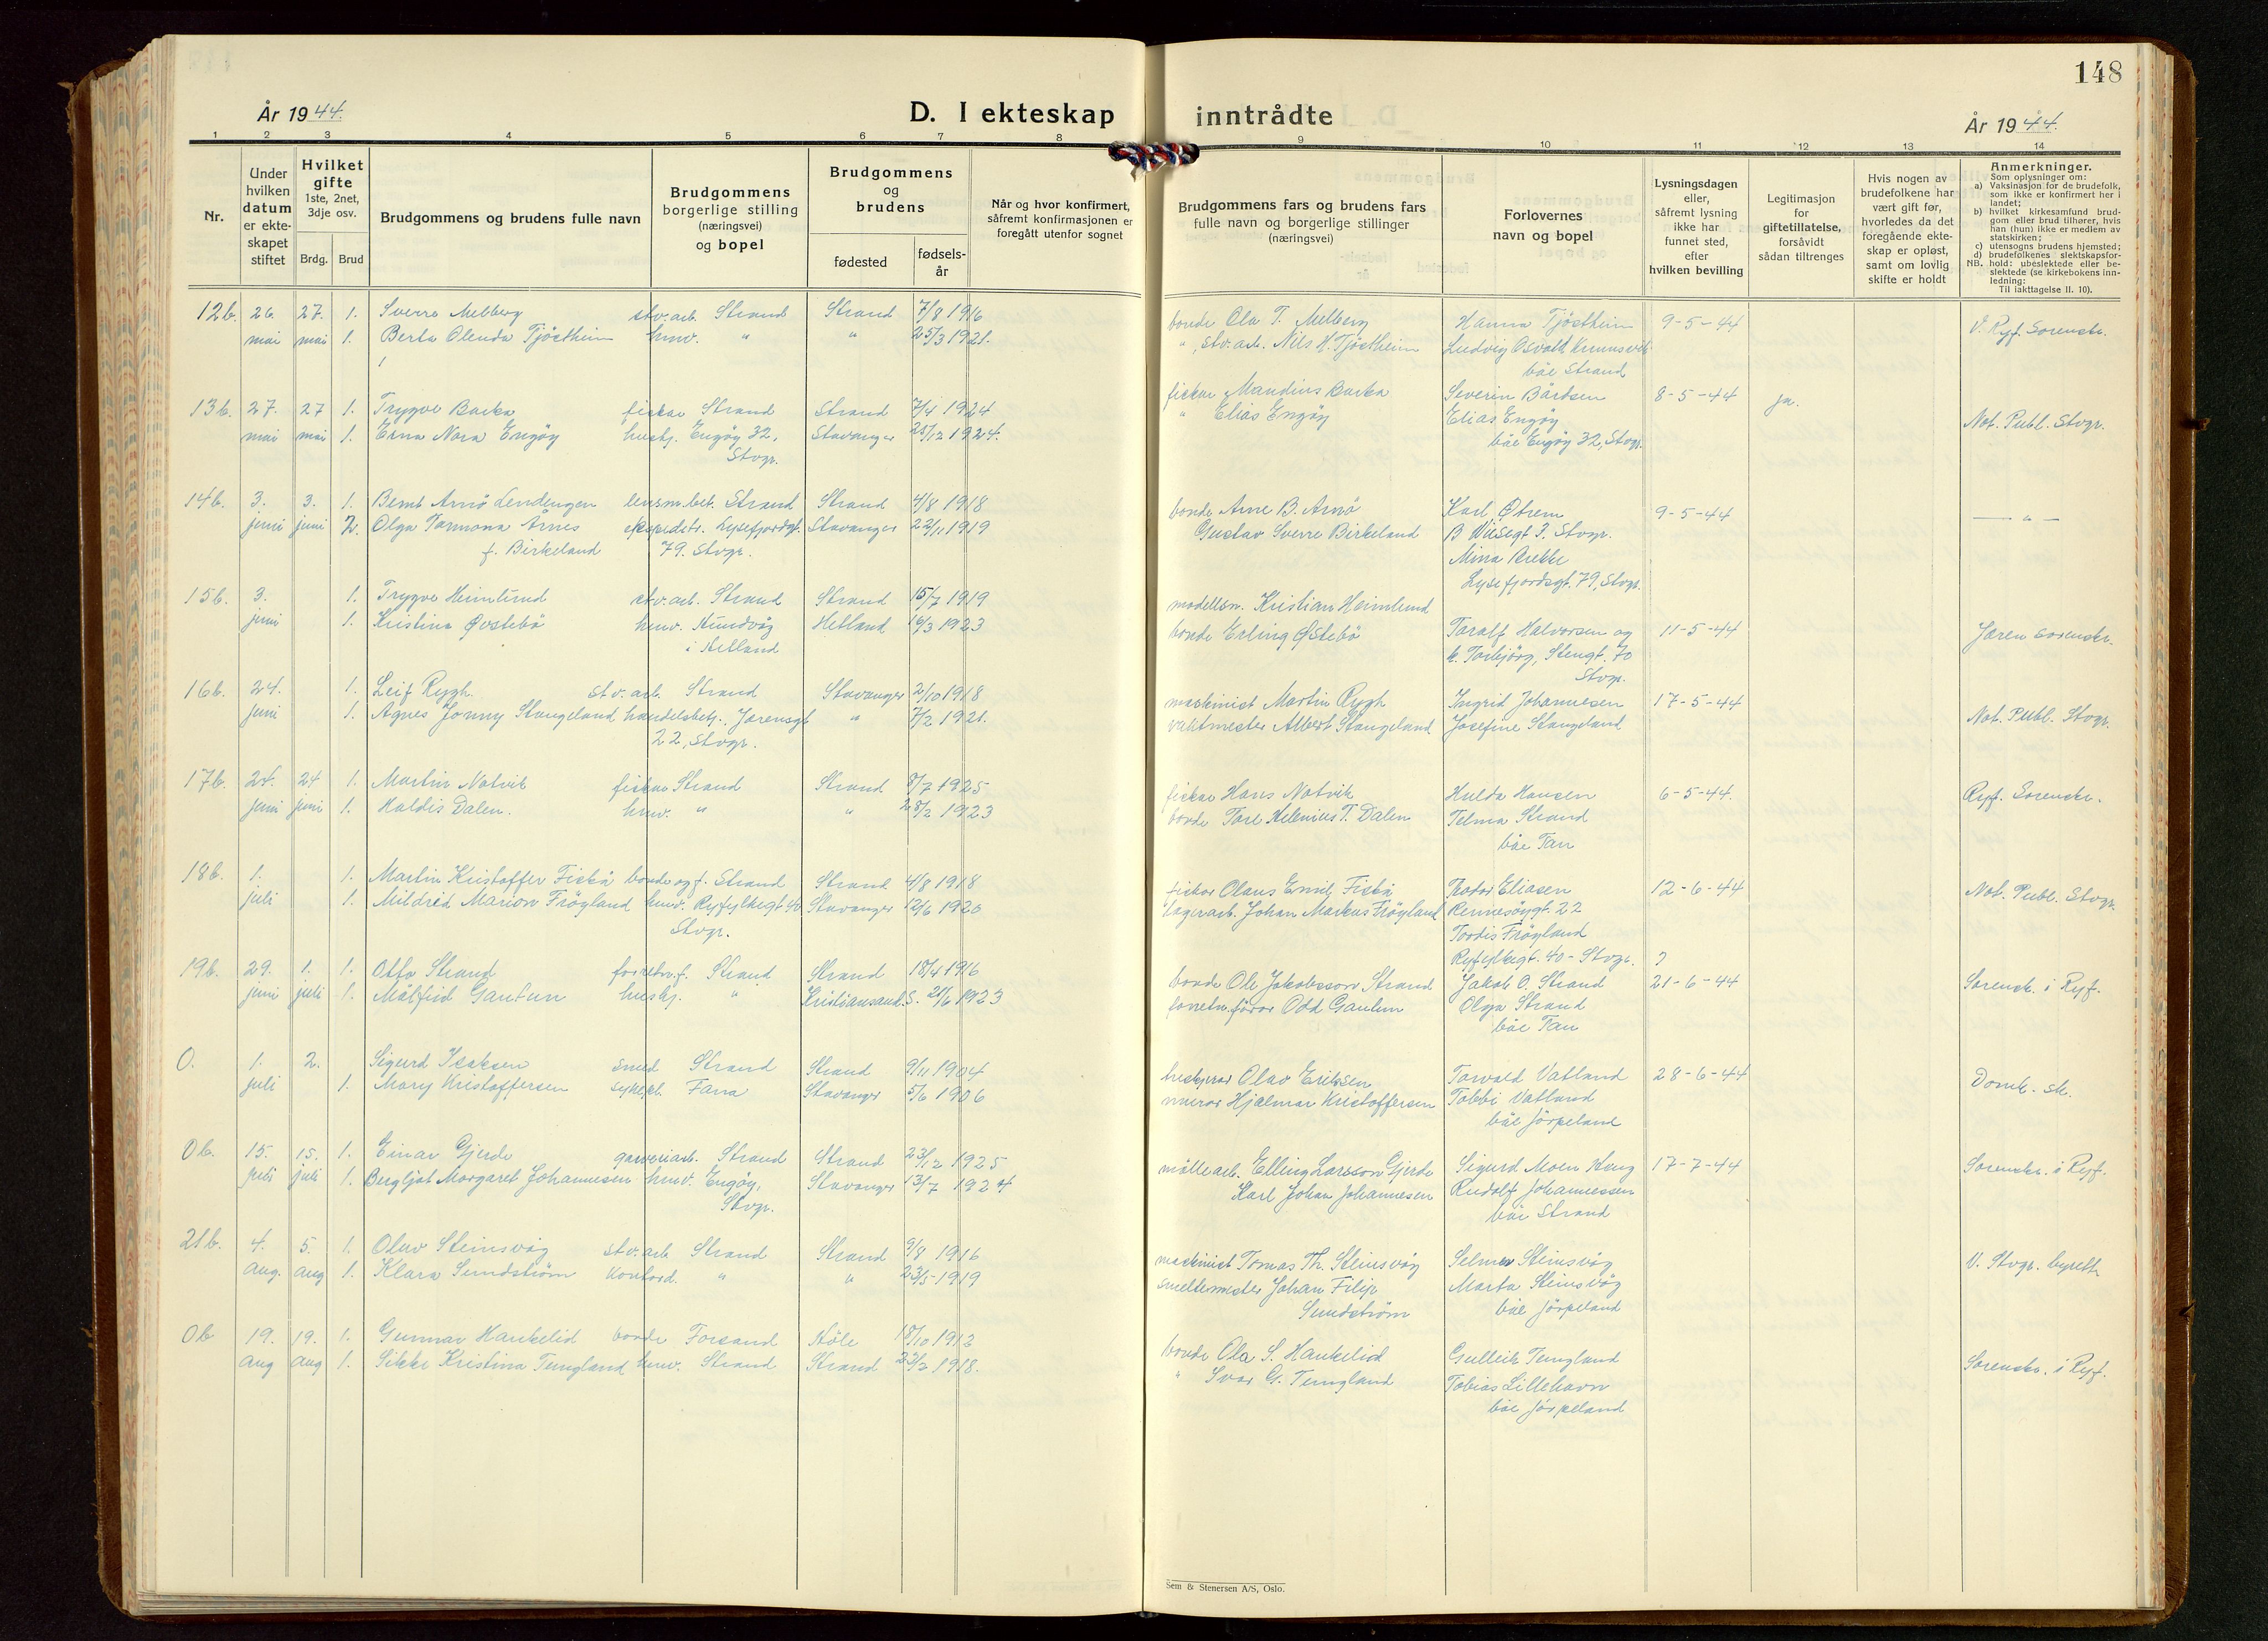 148
År 1944.
D. I ekteskap inntrådte
År 1944.
1 2 3 4 5 6 7 8 9 10 11 12 13 14
Nr.
Under hvilken datum er ekte- skapet stiftet
Hvilket gifte 1ste, 2net, 3dje osv.
Brdg. Brud
Brudgommens og brudens fulle navn
Brudgommens borgerlige stilling (næringsvei) og bopel
Brudgommens og brudens
fødested
fødsels- år
Når og hvor konfirmert, såfremt konfirmasjonen er foregått utenfor sognet
Brudgommens fars og brudens fars fulle navn og borgerlige stillinger (næringsvei)
Forlovernes navn og bopel
Lysningsdagen eller, såfremt lysning ikke har funnet sted, efter hvilken bevilling
Legitimasjon for giftetillatelse, forsåvidt sådan tiltrenges
Hvis nogen av brudefolkene har vært gift før, hvorledes da det foregående ekte- skap er opløst, samt om lovlig skifte er holdt
Anmerkninger.
Som oplysninger om:
a) Vaksinasjon for de brudefolk, som ikke er konfirmert her i landet;
b) hvilket kirkesamfund brud- gom eller brud tilhører, hvis han (hun) ikke er medlem av statskirken;
c) utensogns brudens hjemsted;
d) brudefolkenes slektskapsfor- hold: ubeslektede eller be- slektede (se kirkebokens inn- ledning:
NB. Til iakttagelse II. 10).
12b. 26. 27. 1. Sverre Melberg stv.arb. Strand Strand 7/8 1916 bonde Ola T. Melberg Hanna Tjöstheim 9-5-44 V. Ryf. Sorenskr.
mai mai 1. Berta Olenda Tjöstheim husv. " " 25/3 1921. " , stv.arb. Nils H. Tjöstheim Ludvig Osvald
båe Strand
13b. 27. 27 1. Trygve Barka fiskar Strand Strand 7/4 1924 fiskar Mandius Barka Severin Bårdsen 8-5-44 ja. Not. Publ. Stvgr.
mai mai 1. Erna Nora Engöy hushj. Engöy 32, Stavanger 1924. " Elias Engöy Elias Engöy
Stvgr. båe Engöy 32, Stvgr.
14b. 3. 3. 1. Bernt Arnö Lendengen lensm.bet. Strand Strand 4/8 1918 bonde Arne B. Arnö Karl Östrem 9-5-44 — " —
juni juni 2. Olga Tarmona Årnes ekspeditr. Lysefjordgt. Stavanger 22/11 1919 Gustav Sverre Birkeland B Viisegt 3. Stvgr.
f. Birkeland 79. Stvgr. Mina Brekke
Lysefjordsgt. 79, Stvgr.
15b. 3. 1. Trygve Heimlund stv.arb. Strand Strand 15/7 1919 modellsn. Kristian Heimlund
juni 1. Kristina Östebö husv. Hundvåg Hetland 16/3 1923 bonde Erling Östebö Toralf Halvorsen og 11-5-44 Jæren sorenskr.
i Hetland k. Torbjörg, Stengt. 70
Stvgr.
16b. 24. 1. Leif Rygh. stv.arb. Strand Stavanger 2/10 1918 maskinist Martin Rygh Ingrid Johannesen 17-5-44 Not. Publ. Stvgr.
juni 1. Agnes Jonny Stangeland handelsbetj. Jærensgt " 7/2 1921. vaktmester Albert Stangeland Josefine Stangeland
22, Stvgr.
17b. 24. 24 1. Martin Natvik fiskar Strand Strand 8/7 1925 fiskar Hans Natvik Hulda Hansen 6-5-44. Ryf. Sorenskr.
juni juni 1. Haldis Dalen. husv. " " 28/2 1923 bonde Tore Helenius T. Dalen Telma Strand
båe Tau
18b. 1. 1. Martin Kristoffer Fiskå bonde og f. Strand Strand 4/8 1918 fiskar Olaus Emil Fiskå Teodor Eliasen 12-6-44 Not. Publ. Stvgr.
juli 1. Mildrid Marion Fröyland husv. Ryfylkegt 40 Stavanger 12/6 1920 lagerarb. Johan Markus Fröyland Rennesöygt. 22
Stvgr. Tordis Fröyland
Ryfylkegt. 40 - Stvgr.
19b. 29. 1. 1. Otto Strand forretn.f. Strand Strand 18/4 1916 bonde Ole Jakobsson Strand Jakob O. Strand 21-6-44 Sorensk. i Ryf.
juni juli 1. Målfrid Gautun hushj. " Kristiansand S. 21/6 1923 forretn.förar Odd Gautun Olga Strand
båe Tau
0. 1. 2. Sigurd Isaksen smed Strand Strand 9/11 1904 Olav Eriksen Torvald Vatland 28-6-44 Domk. sk.
juli 1. Mary Kristoffersen sykepl. Fana Stavanger 5/6 1906 murar Hjalmar Kristoffersen Tobbi Vatland
båe Jörpeland
0b. 15. 15. 1. Einar Gjerde garveriarb. Strand Strand 23/12 1925 mölle arb. Elling Larsson Gjerde Sigurd Moen Haug 17-7-44 Sorenskr. i Ryf.
juli juli 1. Bergljot Margaret Johannesen husv. Engöy, Stavanger 13/7 1924 Karl Johan Johannesen Rudolf Johannessen
Stvgr. båe Strand
21b. 4. 5. 1. Olav Steinsvåg stv.arb Strand Strand 9/8 1916 maskinist Tomas Th. Steinsvåg Selmer Steinsvåg V. Stvgr. byrett
aug. aug 1. Klara Sundström Kontord. " " 23/5 1919 smeltemester Johan Filip Marta Steinsvåg
Sundström båe Jörpeland
0b 19. 19. 1. Gunnar Haukelid bonde Forsand Höle 18/10 1912 bonde Ola S. Haukelid Gulleik Tungland Sorenskr. i Ryf.
aug aug 1. Sikke Kristina Tungland husv. Strand Strand 23/2 1918. " Ivar G. Tungland Tobias Lillehavn
båe Jörpeland
Sem & Stenersen A/S, Oslo.